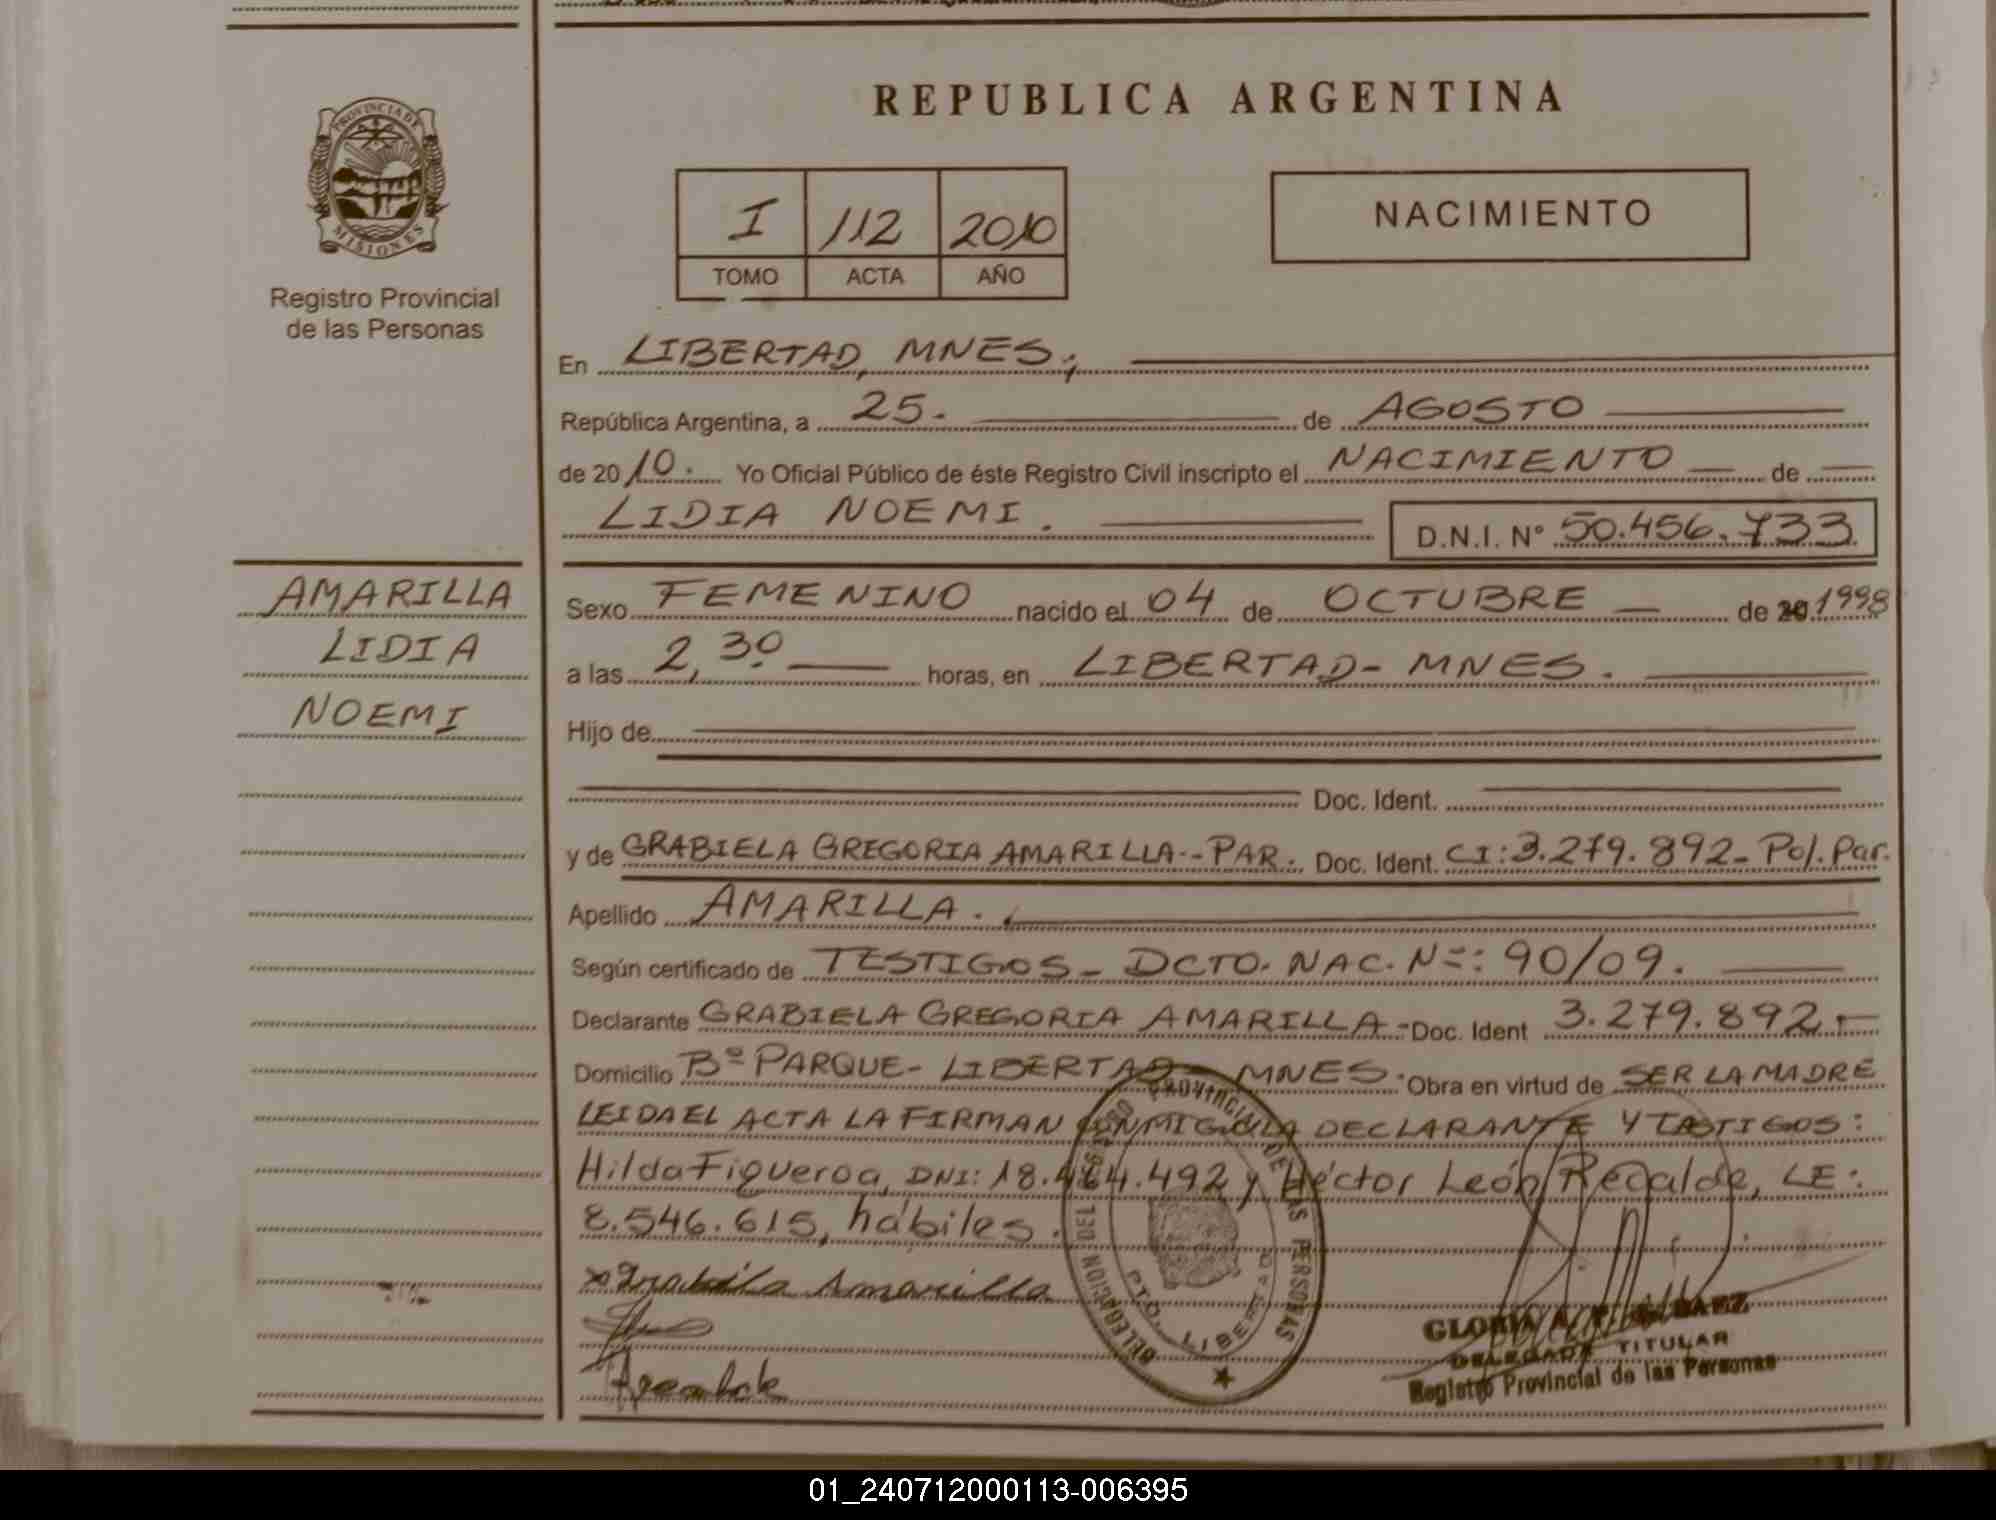 REPUBLICA ARGENTINA
PROVINCIA DE MISIONES
Registro Provincial
de las Personas
I 112 2010
TOMO ACTA AÑO
NACIMIENTO
En LIBERTAD, MNES;
República Argentina, a 25. de AGOSTO
de 2010. Yo Oficial Público de éste Registro Civil inscripto el NACIMIENTO de
LIDIA NOEMI. D.N.I. N° 50.456.733
AMARILLA
LIDIA
NOEMI
Sexo FEMENINO nacido el 04 de OCTUBRE de 20 1998
a las 2,30 horas, en LIBERTAD - MNES.
Hijo de
Doc. Ident.
y de GRABIELA GREGORIA AMARILLA.-PAR. Doc. Ident. CI: 3.279.892- Pol. Par.
Apellido AMARILLA.
Según certificado de TESTIGOS - DCTO. NAC. Nº: 90/09.
Declarante GRABIELA GREGORIA AMARILLA - Doc. Ident 3.279.892.-
Domicilio Bº PARQUE - LIBERTAD - MNES. Obra en virtud de SER LA MADRE
LEIDA EL ACTA LA FIRMAN CONMIGO LA DECLARANTE Y TASTIGOS:
Hilda Figueroa, DNI: 18.464.492 y Héctor León Recalde, LE:
8.546.615, hábiles.
x Grabiela Amarilla
DELEGACION DEL REGISTRO PROVINCIAL DE LAS PERSONAS
PTO. LIBERTAD
GLORIA BAEZ
DELEGADA TITULAR
Registro Provincial de las Personas
01_240712000113-006395